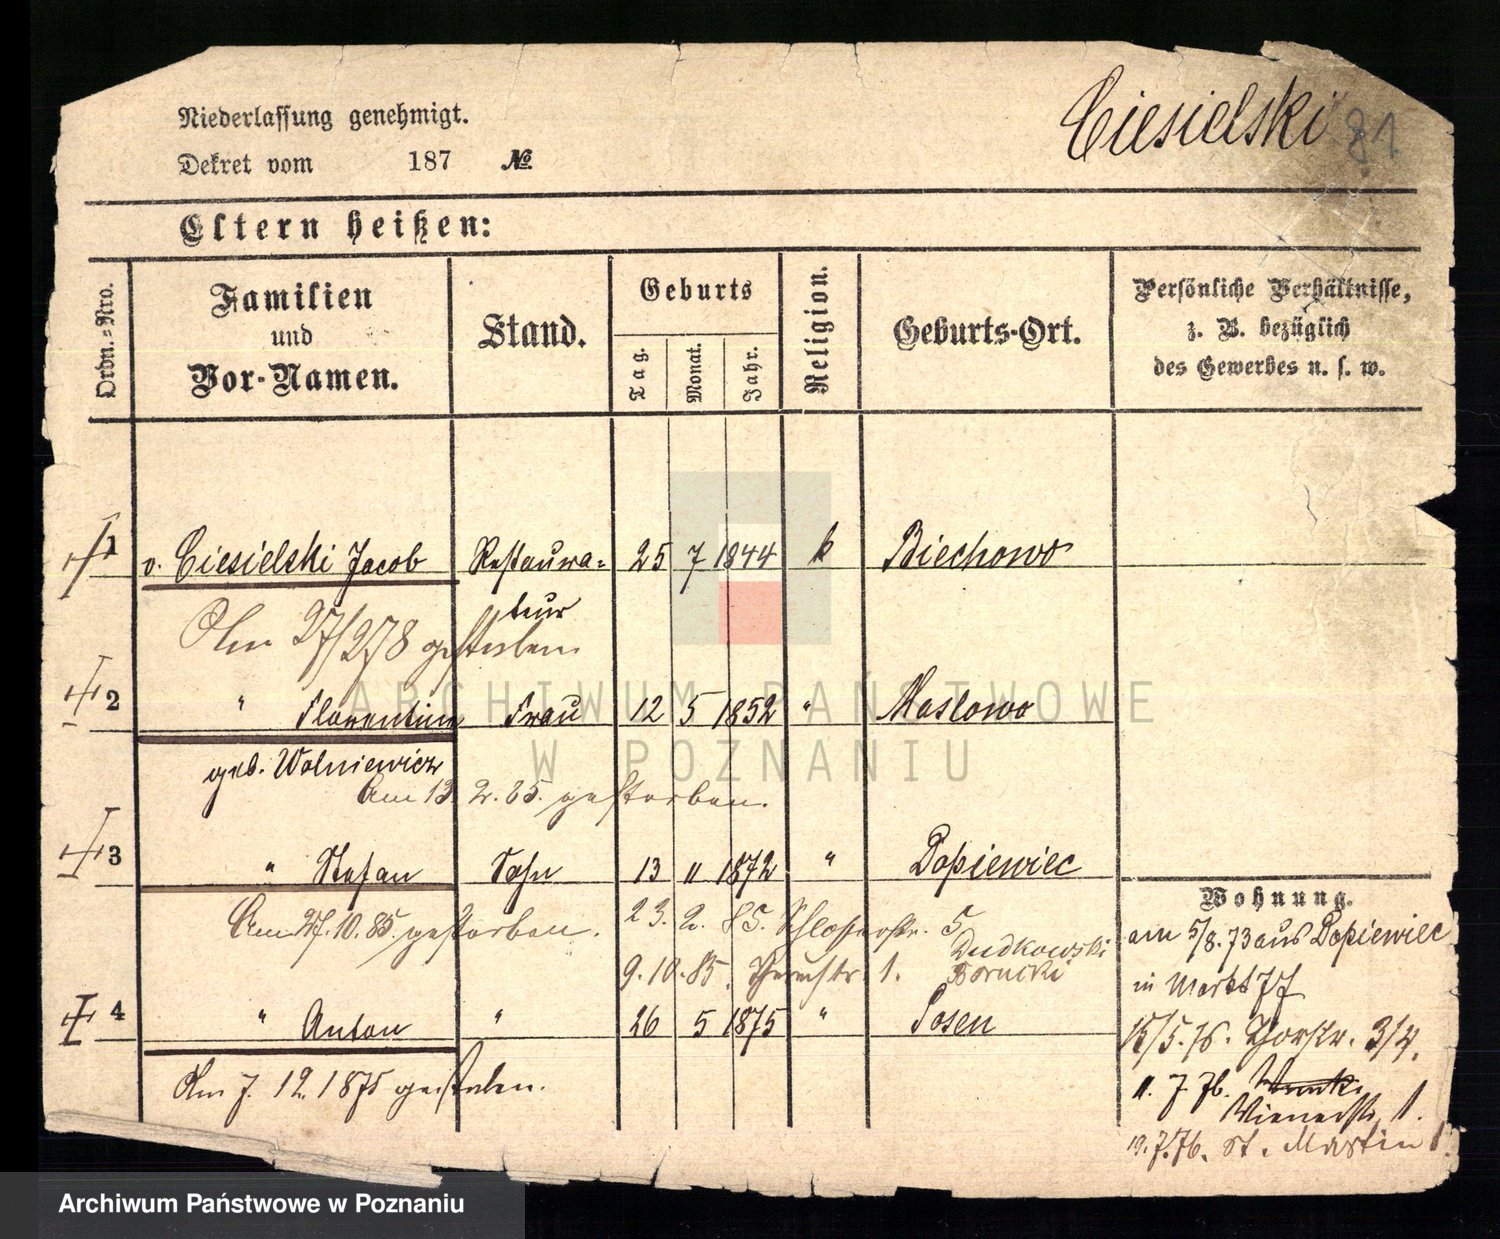 Niederlassung genehmigt.
Dekret vom 187 №
Ciesielski
81
Eltern heißen:
Ordn.-Nro.
Familien und Vor-Namen.
Stand.
Geburts
Tag.
Monat.
Jahr.
Religion.
Geburts-Ort.
Persönliche Verhältnisse,
z. B. bezüglich
des Gewerbes u. s. w.
1 v. Ciesielski Jacob Restaura= 25 7 1844 k Biechowo
teur
Am 27/2 78 gestorben
2 " Florentine Frau 12 5 1852 " Maslowo
geb. Wolniewicz
Am 13. 2. 85. gestorben.
3 " Stefan Sohn 13 11 1872 " Dopiewiec
Am 27. 10. 85. gestorben.
23. 2. 85. Schlosserstr. 5
Dudkowski
9. 10. 85. 1. Bornicki
4 " Anton " 26 5 1875 " Posen
Am 7. 12. 1875 gestorben.
Wohnung.
am 5/8. 73 aus Dopiewiec
in Markt 77
15/5. 76. Thorstr. 3/4.
11. 7 76.
Wienerstr. 1.
19. 7. 76. St. Martin 1.
ARCHIWUM PAŃSTWOWE
W POZNANIU
Archiwum Państwowe w Poznaniu